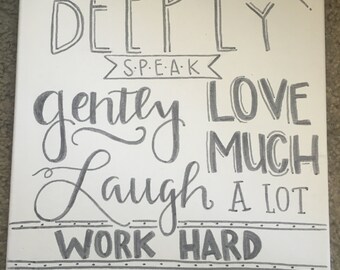 DEEPLY
S·P·E·A·K
gently
LOVE
MUCH
Laugh
A LOT
WORK HARD